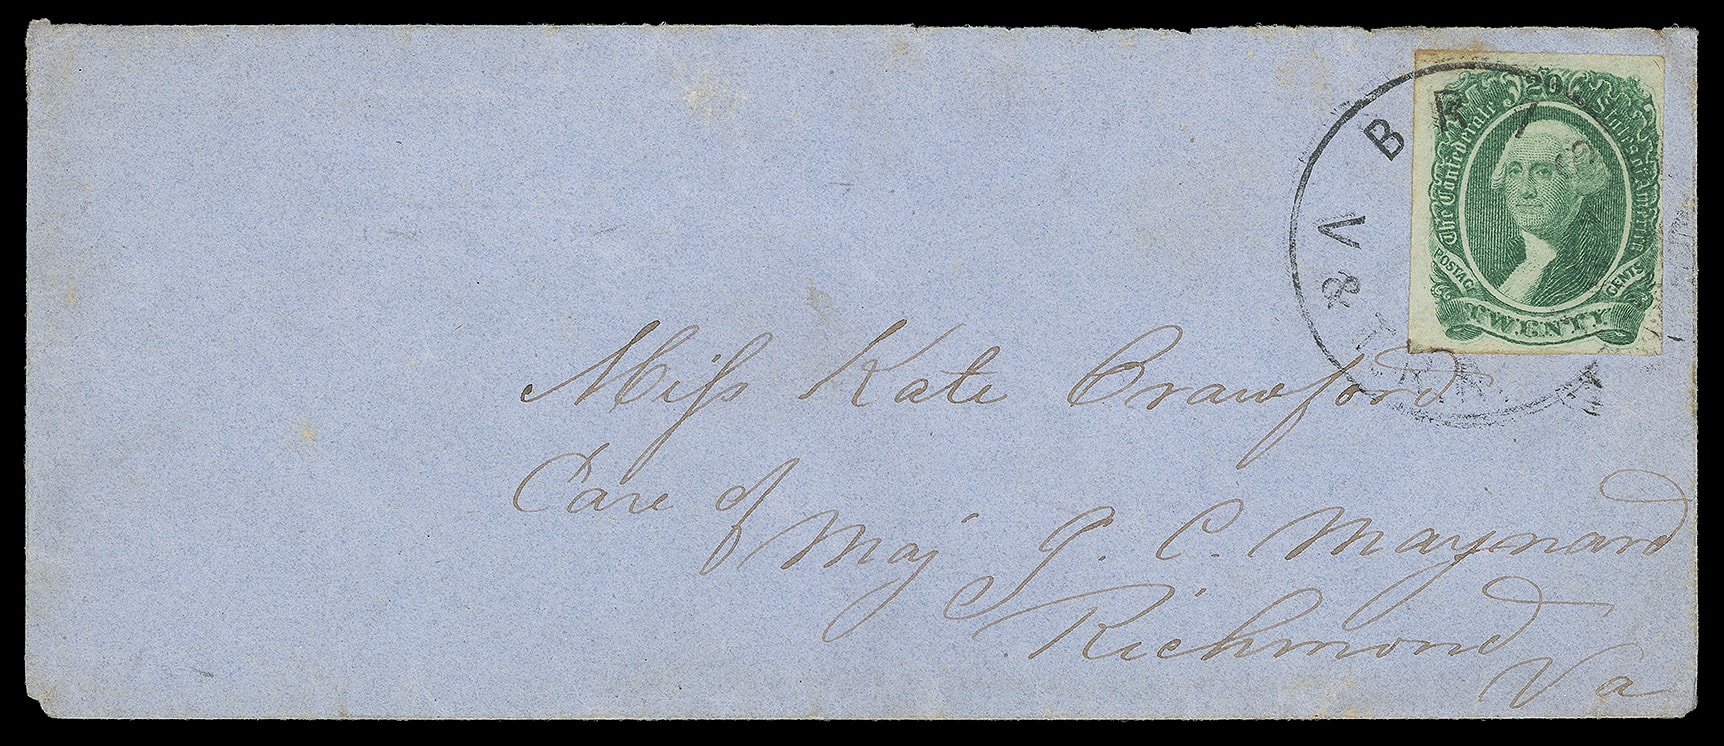 The Confederate States of America
20
POSTAGE CENTS
TWENTY
VA & BR
Miss Kate Crawford
Care of
Maj J. C. Maynard
Richmond
Va